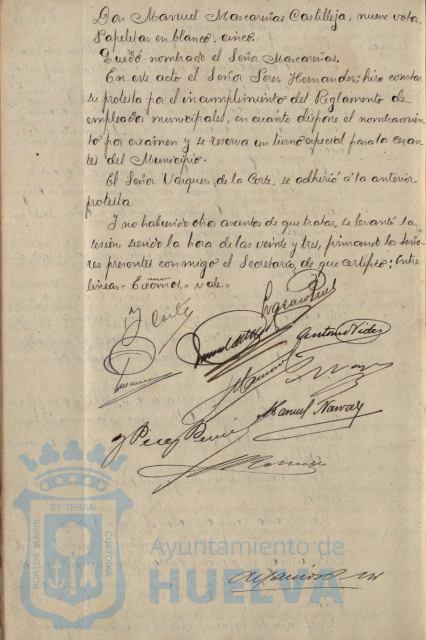 Don Manuel Mascareñas Castilleja, nueve votos.
Papeletas en blanco, cinco.
Quedó nombrado el Señor Mascareñas.
En este acto el Señor Peres Hernandez; hizo constar
su protesta por el incumplimiento del Reglamento de
empleados municipales, en cuanto dispone el nombramien
to por examen y se reserva un turno especial para los cesan
tes del Municipio.
El Señor Vázquez de la Corte, se adhirió á la anterior
protesta
Y no habiendo otros asuntos de que tratar, se levantó la
sesión siendo la hora de las veinte y tres, firmando los Seño
res presentes conmigo el Secretario, de que certifico: Entre
lineas= = vale.=
J Corte
Antonio Vides
Manuel Navarro
J Perez
PORTUS MARIS
ET TERRA
CUSTODIA
Ayuntamiento de
HUELVA